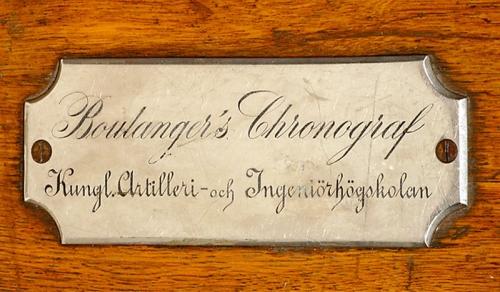 Boulanger's Chronograf
Kungl. Artilleri- och Ingeniörhögskolan